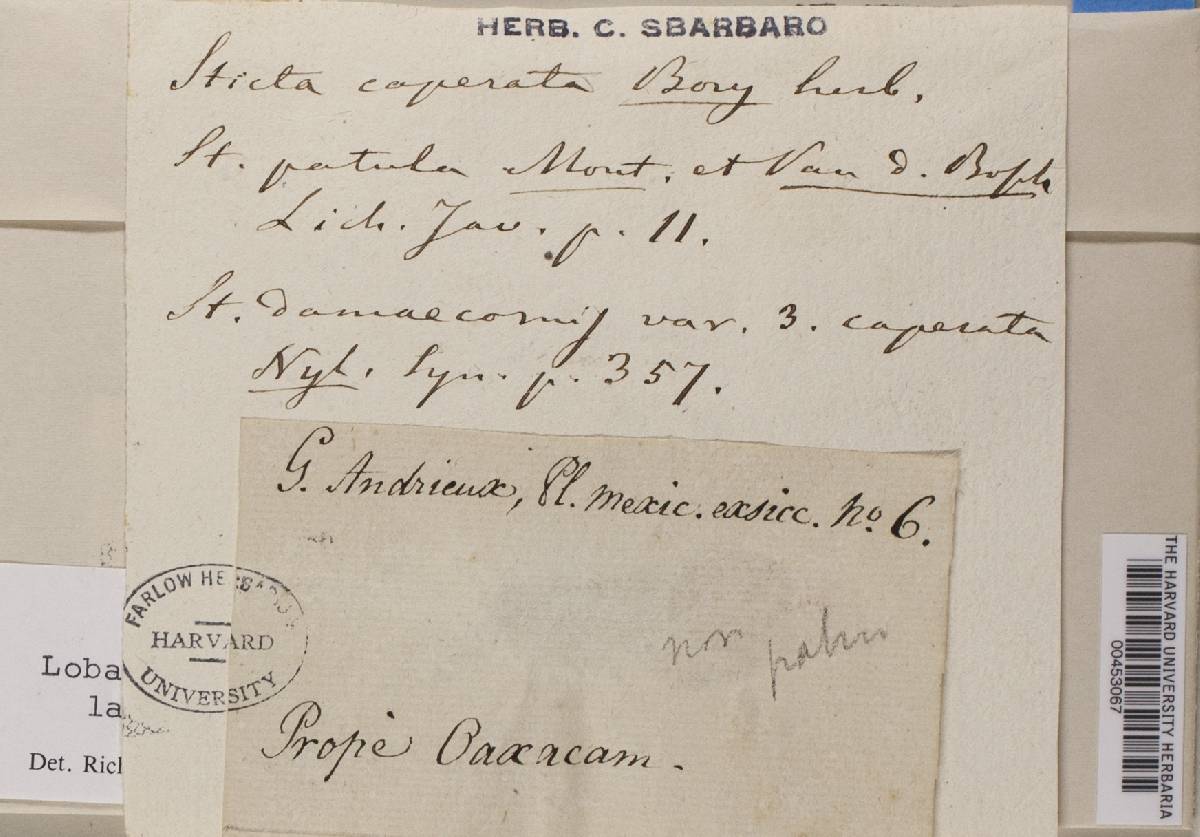 HERB. C. SBARBARO
Sticta caperata Bory herb.
St. patula Mont. et Van d. Bosch
Lich. Jav. p. 11.
St. damaecornis var. 3. caperata
Nyl. Syn. p. 357.
G. Andrieux, Pl. mexic. exsicc. no. 6.
non
Prope Oaxacam.
FARLOW HERBARIUM
HARVARD
UNIVERSITY
Loba
la
Det. Ricl
THE HARVARD UNIVERSITY HERBARIA
00453067